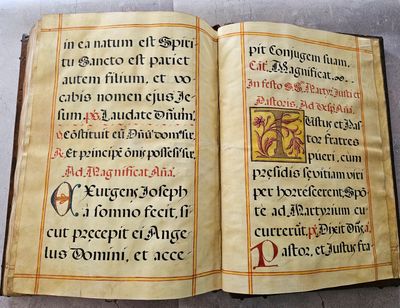 in ea natum est Spiri
tu Sancto est pariet
autem filium, et vo
cabis nomen ejus Je-
sum. ps. Laudate Dñum.
℣. Cõstituit eũ Dñũ domꝰ suę.
℟. Et principẽ õnis possesꝰ suę.
Ad Magnificat Aña.
EXurgens Joseph
à somno fecit, si
cut precepit ei Ange
lus Domini, et acce-
pit Conjugem suam.
Cãt. Magnificat.
In festo S.S. Martyr. Justi et
Pastoris, Ad Vesp. Aña.
IUstus et Pas
tor fratres
pueri, cum
presidis sęvitiam viri
per horrescerent, Spõ
te ad Martyrium cu
currerũt. ps. Dixit Dñs. a.
Pastor, et Justus fra